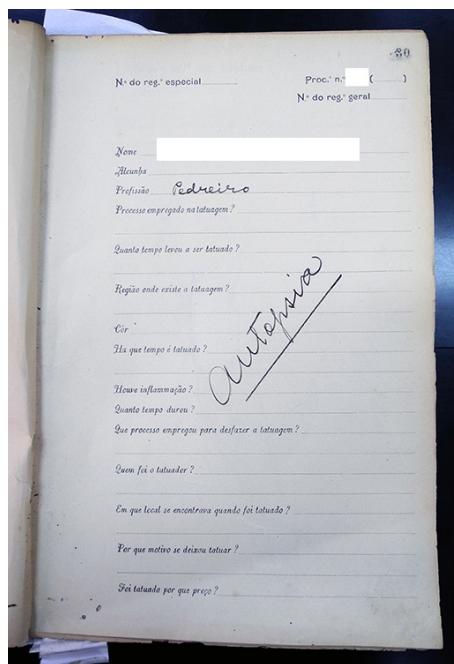 30
N.º do reg.º especial
Proc.º n.º ( )
N.º do reg.º geral
Nome
Alcunha
Profissão Pedreiro
Processo empregado na tatuagem?
Quanto tempo levou a ser tatuado?
Região onde existe a tatuagem?
Côr
Ha que tempo é tatuado?
Autopsia
Houve inflammação?
Quanto tempo durou?
Que processo empregou para desfazer a tatuagem?
Quem foi o tatuador?
Em que local se encontrava quando foi tatuado?
Por que motivo se deixou tatuar?
Foi tatuado por que preço?